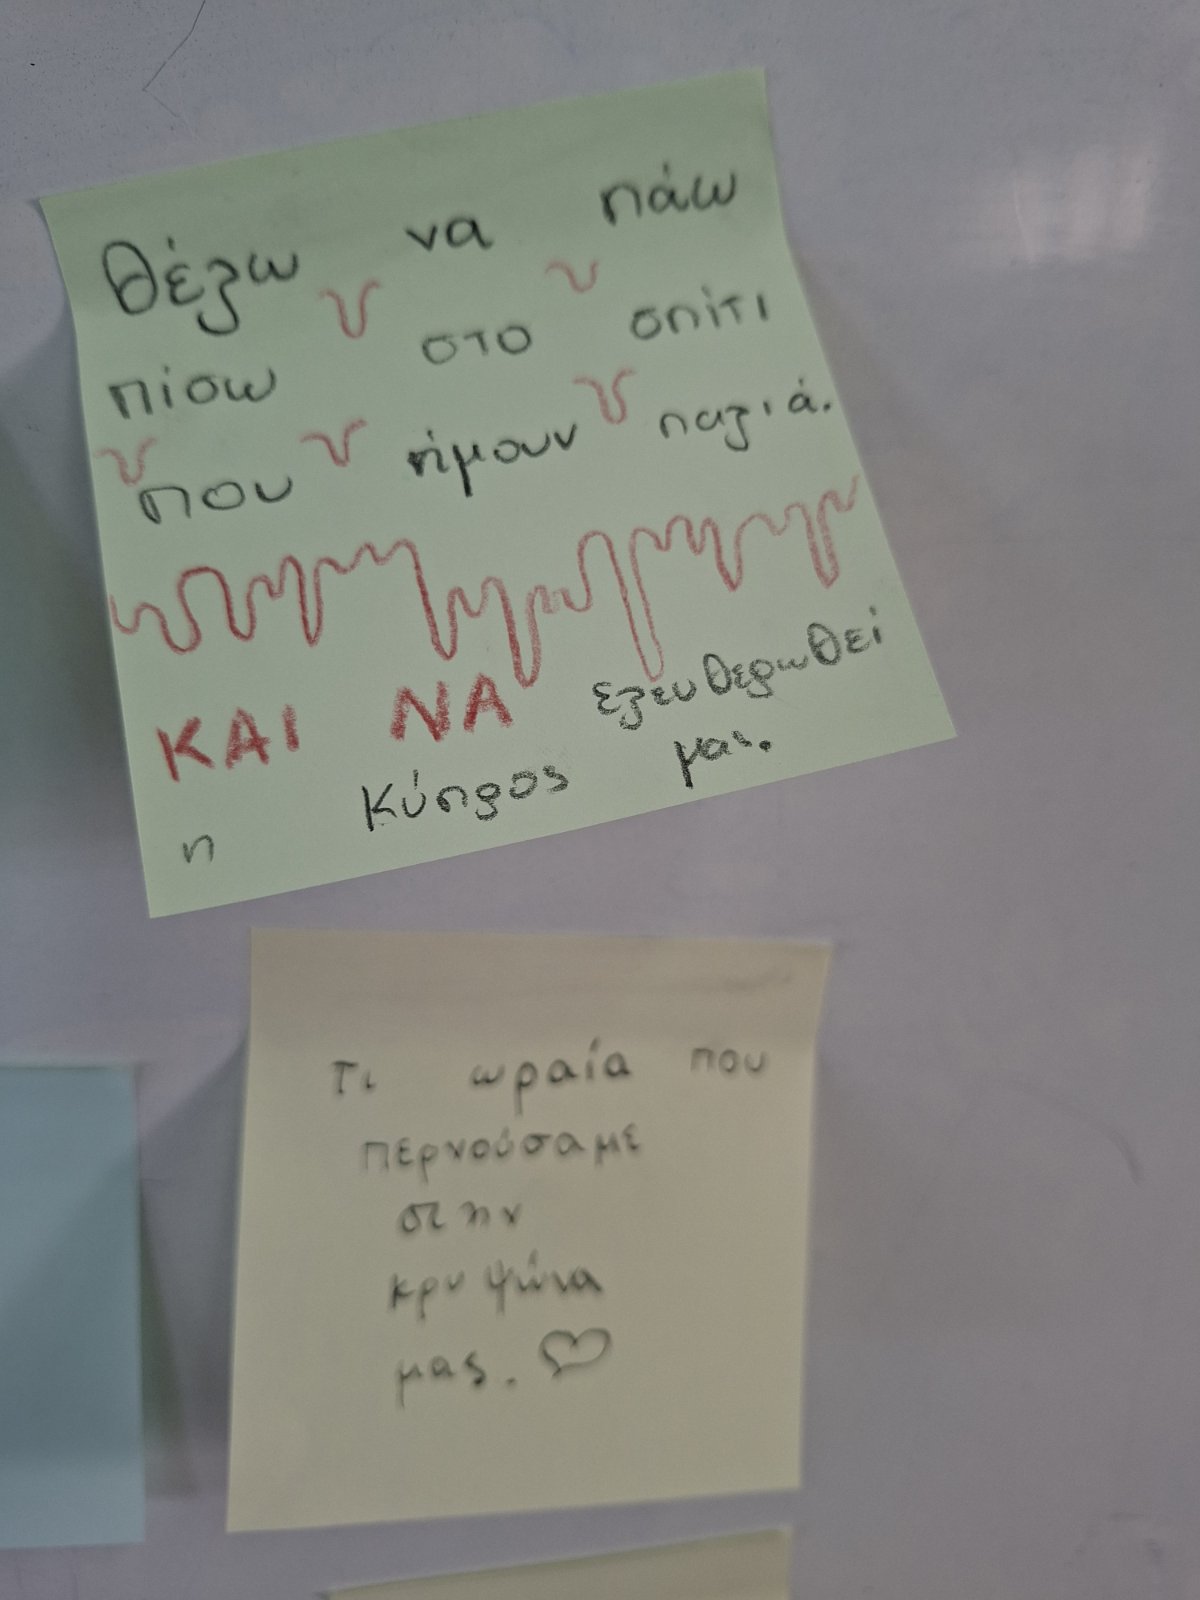 θέλω να πάω
πίσω στο σπίτι
που ήμουν παλιά.
ΚΑΙ ΝΑ ελευθερωθεί
η Κύπρος μας.
Τι ωραία που
περνούσαμε
στην
κρυψώνα
μας.